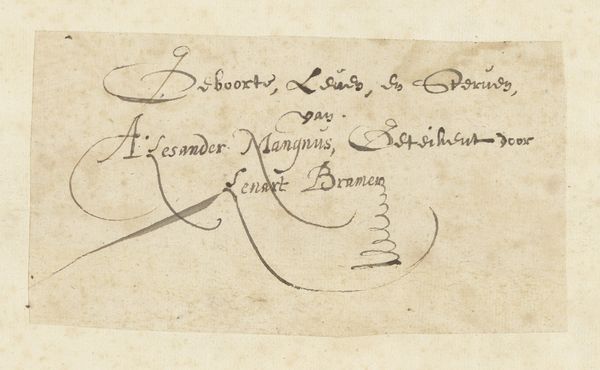 Geboorte, Leuen, en Steruen,
van.
Alesander Mangnus, Geteikent door
Lenart Bramer